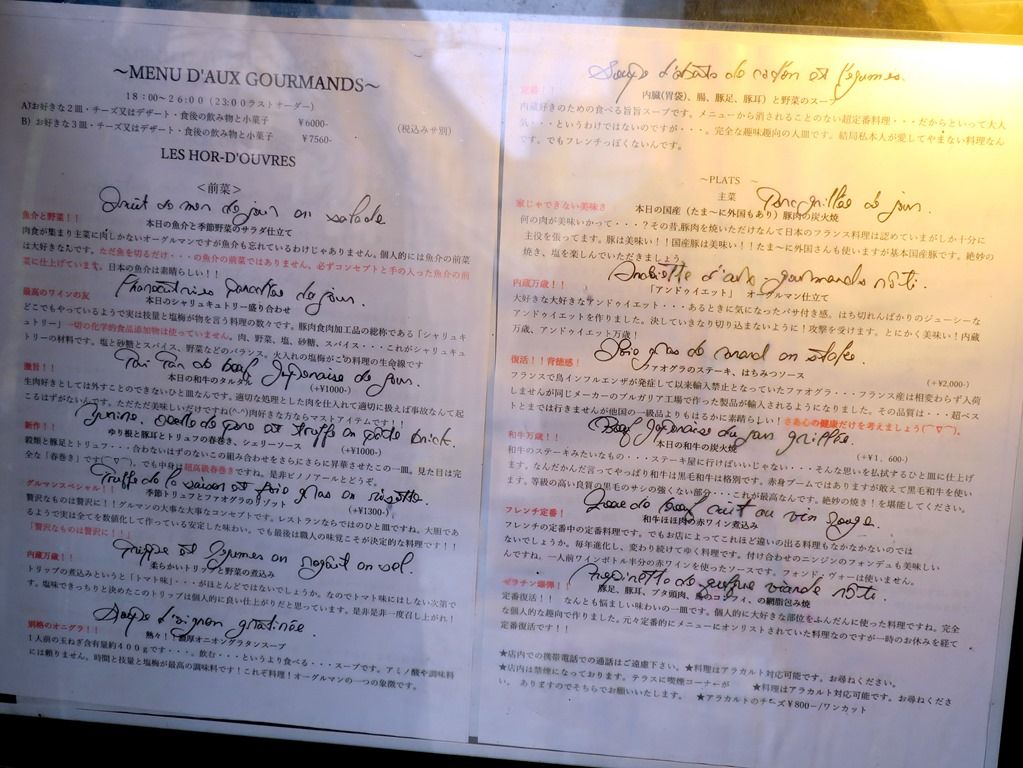 ~MENU D'AUX GOURMANDS~
18:00~26:00(23:00ラストオーダー)
A)お好きな2皿・チーズ又はデザート・食後の飲み物と小菓子 ¥6000-
B) お好きな3皿・チーズ又はデザート・食後の飲み物と小菓子 ¥7560- (税込みサ別)
LES HOR-D'OUVRES
<前菜>
Fruit de mer de jour en salade
魚介と野菜!!
本日の魚介と季節野菜のサラダ仕立て
肉食が集まり主菜に肉しかないオーグルマンですが魚介も忘れているわけじゃありません。個人的には魚介の前菜
は大好きなんです。ただ魚を切るだけ・・・の魚介の前菜ではありません。必ずコンセプトと手の入った魚介の前
菜に仕上げています。日本の魚介は素晴らしい!!
de jour.
最高のワインの友
本日のシャリュキュトリー盛り合わせ
どこでもやっているようで実は技量と塩梅が物を言う料理の数々です。豚肉食肉加工品の総称である「シャリュキ
ュトリー」一切の化学的食品添加物は使っていません。肉、野菜、塩、砂糖、スパイス・・・これがシャリュキュ
トリーの材料です。塩と砂糖とスパイス、野菜などのバランス。火入れの塩梅がこの料理の生命線です
de bœuf Japonaise de jour.
激旨!!
本日の和牛のタルタル (+¥1000-)
生肉好きとしては外すことのできないひと皿なんです。適切な処理とした肉を仕入れて適切に扱えば事故なんて起
こるはずがない
新作!!
ゆり根と豚耳とトリュフの春巻き、シェリーソース (+¥1000-)
穀類と豚足とトリュフ・・・合わないはずのないこの組み合わせをさらにさらに昇華させたこの一皿。見た目は完
全な「春巻き」です
Truffe de la saison et foie gras en risotto
グルマンスペシャル!!
季節トリュフとファオグラのリゾット (+¥1300-)
贅沢なものは贅沢に!!グルマンの大事な大事なコンセプトです。レストランならではのひと皿ですね。大胆であ
るようで実は全てを数値化して作っている安定した味わい。でも最後は職人の味覚こそが決定的な料理です!!
「贅沢なものは贅沢に!!」
légumes en ragoût en sel.
内蔵万歳!!
柔らかいトリップと野菜の煮込み
トリップの煮込みというと「トマト味」・・・がほとんどではないでしょうか。なのでトマト味にはしない次第で
す。塩味できっちりと決めたこのトリップは個人的に良い仕上がりだと思っています。是非是非一度召し上がれ!
Soupe d'oignon gratinée.
別格のオニグラ!!
熱々!!濃厚オニオングラタンスープ
1人前の玉ねぎ含有量約400gです・・・。飲む・・・というより食べる・・・スープです。アミノ酸や調味料
には頼りません。時間と技量と塩梅が最高の調味料です!これぞ料理!オーグルマンの一つの象徴です。
et légumes.
定番!!
内臓(胃袋)、腸、豚足、豚耳)と野菜のスープ
内蔵好きのための食べる旨旨スープです。メニューから消されることのない超定番料理・・・だからといって大人
気・・・というわけではないのですが・・・。完全な趣味趣向の人皿です。結局私本人が愛してやまない料理なん
です。でもフレンチっぽくないんです。
~PLATS ~
主菜
Porc grillée de jour.
家じゃできない美味さ
本日の国産(たま~に外国もあり)豚肉の炭火焼
何の肉が美味いかって・・・?その昔、豚肉を焼いただけなんて日本のフランス料理は認めていまがしか十分に
主役を張ってます。豚は美味い!!国産豚は美味い!!たま~に外国さんも使いますが基本国産豚です。絶妙の
焼き、塩を楽しんでいただきましょう。
rôti.
内蔵万歳!!
「アンドゥイエット」 オーグルマン仕立て
大好きな大好きなアンドゥイエット・・・あるときに気になったパサ付き感。はち切れんばかりのジューシーな
アンドゥイエットを作りました。決していきなり切り込まないように!攻撃を受けます。とにかく美味い!内蔵
万歳、アンドゥイエット万歳!
Foie gras de canard en
復活!!背徳感!
ファオグラのステーキ、はちみつソース (+¥2,000-)
フランスで鳥インフルエンザが発症して以来輸入禁止となっていたファオグラ・・・フランス産は相変わらず入荷
しませんが同じメーカーのブルガリア工場で作った製品が輸入されるようになりました。その品質は・・・超ベス
トとまでは行きませんが他国の一級品よりもはるかに素晴らしい!さあ心の健康だけを考えましょう(⌒▽⌒)。
Bœuf Japonaise de jour grillée.
和牛万歳!!
本日の和牛の炭火焼 (+¥1, 600-)
和牛のステーキみたいなもの・・・ステーキ屋に行けばいいじゃない・・・そんな思いを払拭するひと皿に仕上げ
ます。なんだかんだ言ってやっぱり和牛は黒毛和牛は格別です。赤身ブームではありますが敢えて黒毛和牛を使い
ます。等級の高い良質の黒毛のサシの強くない部分・・・これが最高なんです。絶妙の焼き!を堪能してください。
Joue de bœuf cuit au vin rouge.
フレンチ定番!
和牛ほほ肉の赤ワイン煮込み
フレンチの定番中の定番料理です。でもお店によってこれほど違いの出る料理もなかなかないのでは
ないでしょうか。毎年進化し、変わり続けてゆく料理です。付け合わせのニンジンのフォンデュも美味しい
んですね。一人前ワインボトル半分の赤ワインを使ったソースです。フォンド, ヴォーは使いません。
rôti.
ゼラチン爆弾!!
豚足、豚耳、ブタ頭肉、鳥のコンフィ、の網脂包み焼
定番復活!! なんとも悩ましい味わいの一皿です。個人的に大好きな部位をふんだんに使った料理ですね。完全
な個人的な趣向で作りました。元々定番的にメニューにオンリストされていた料理なのですが一時のお休みを経て
定番復活です!!
★店内での携帯電話での通話はご遠慮下さい。★料理はアラカルト対応可能です。お尋ねください。
★店内は禁煙になっております。テラスに喫煙コーナーが ★料理はアラカルト対応可能です。お尋ねくださ
い。 ありますのでそちらでお願いいたします。 ★アラカルトのチーズ¥800-/ワンカット